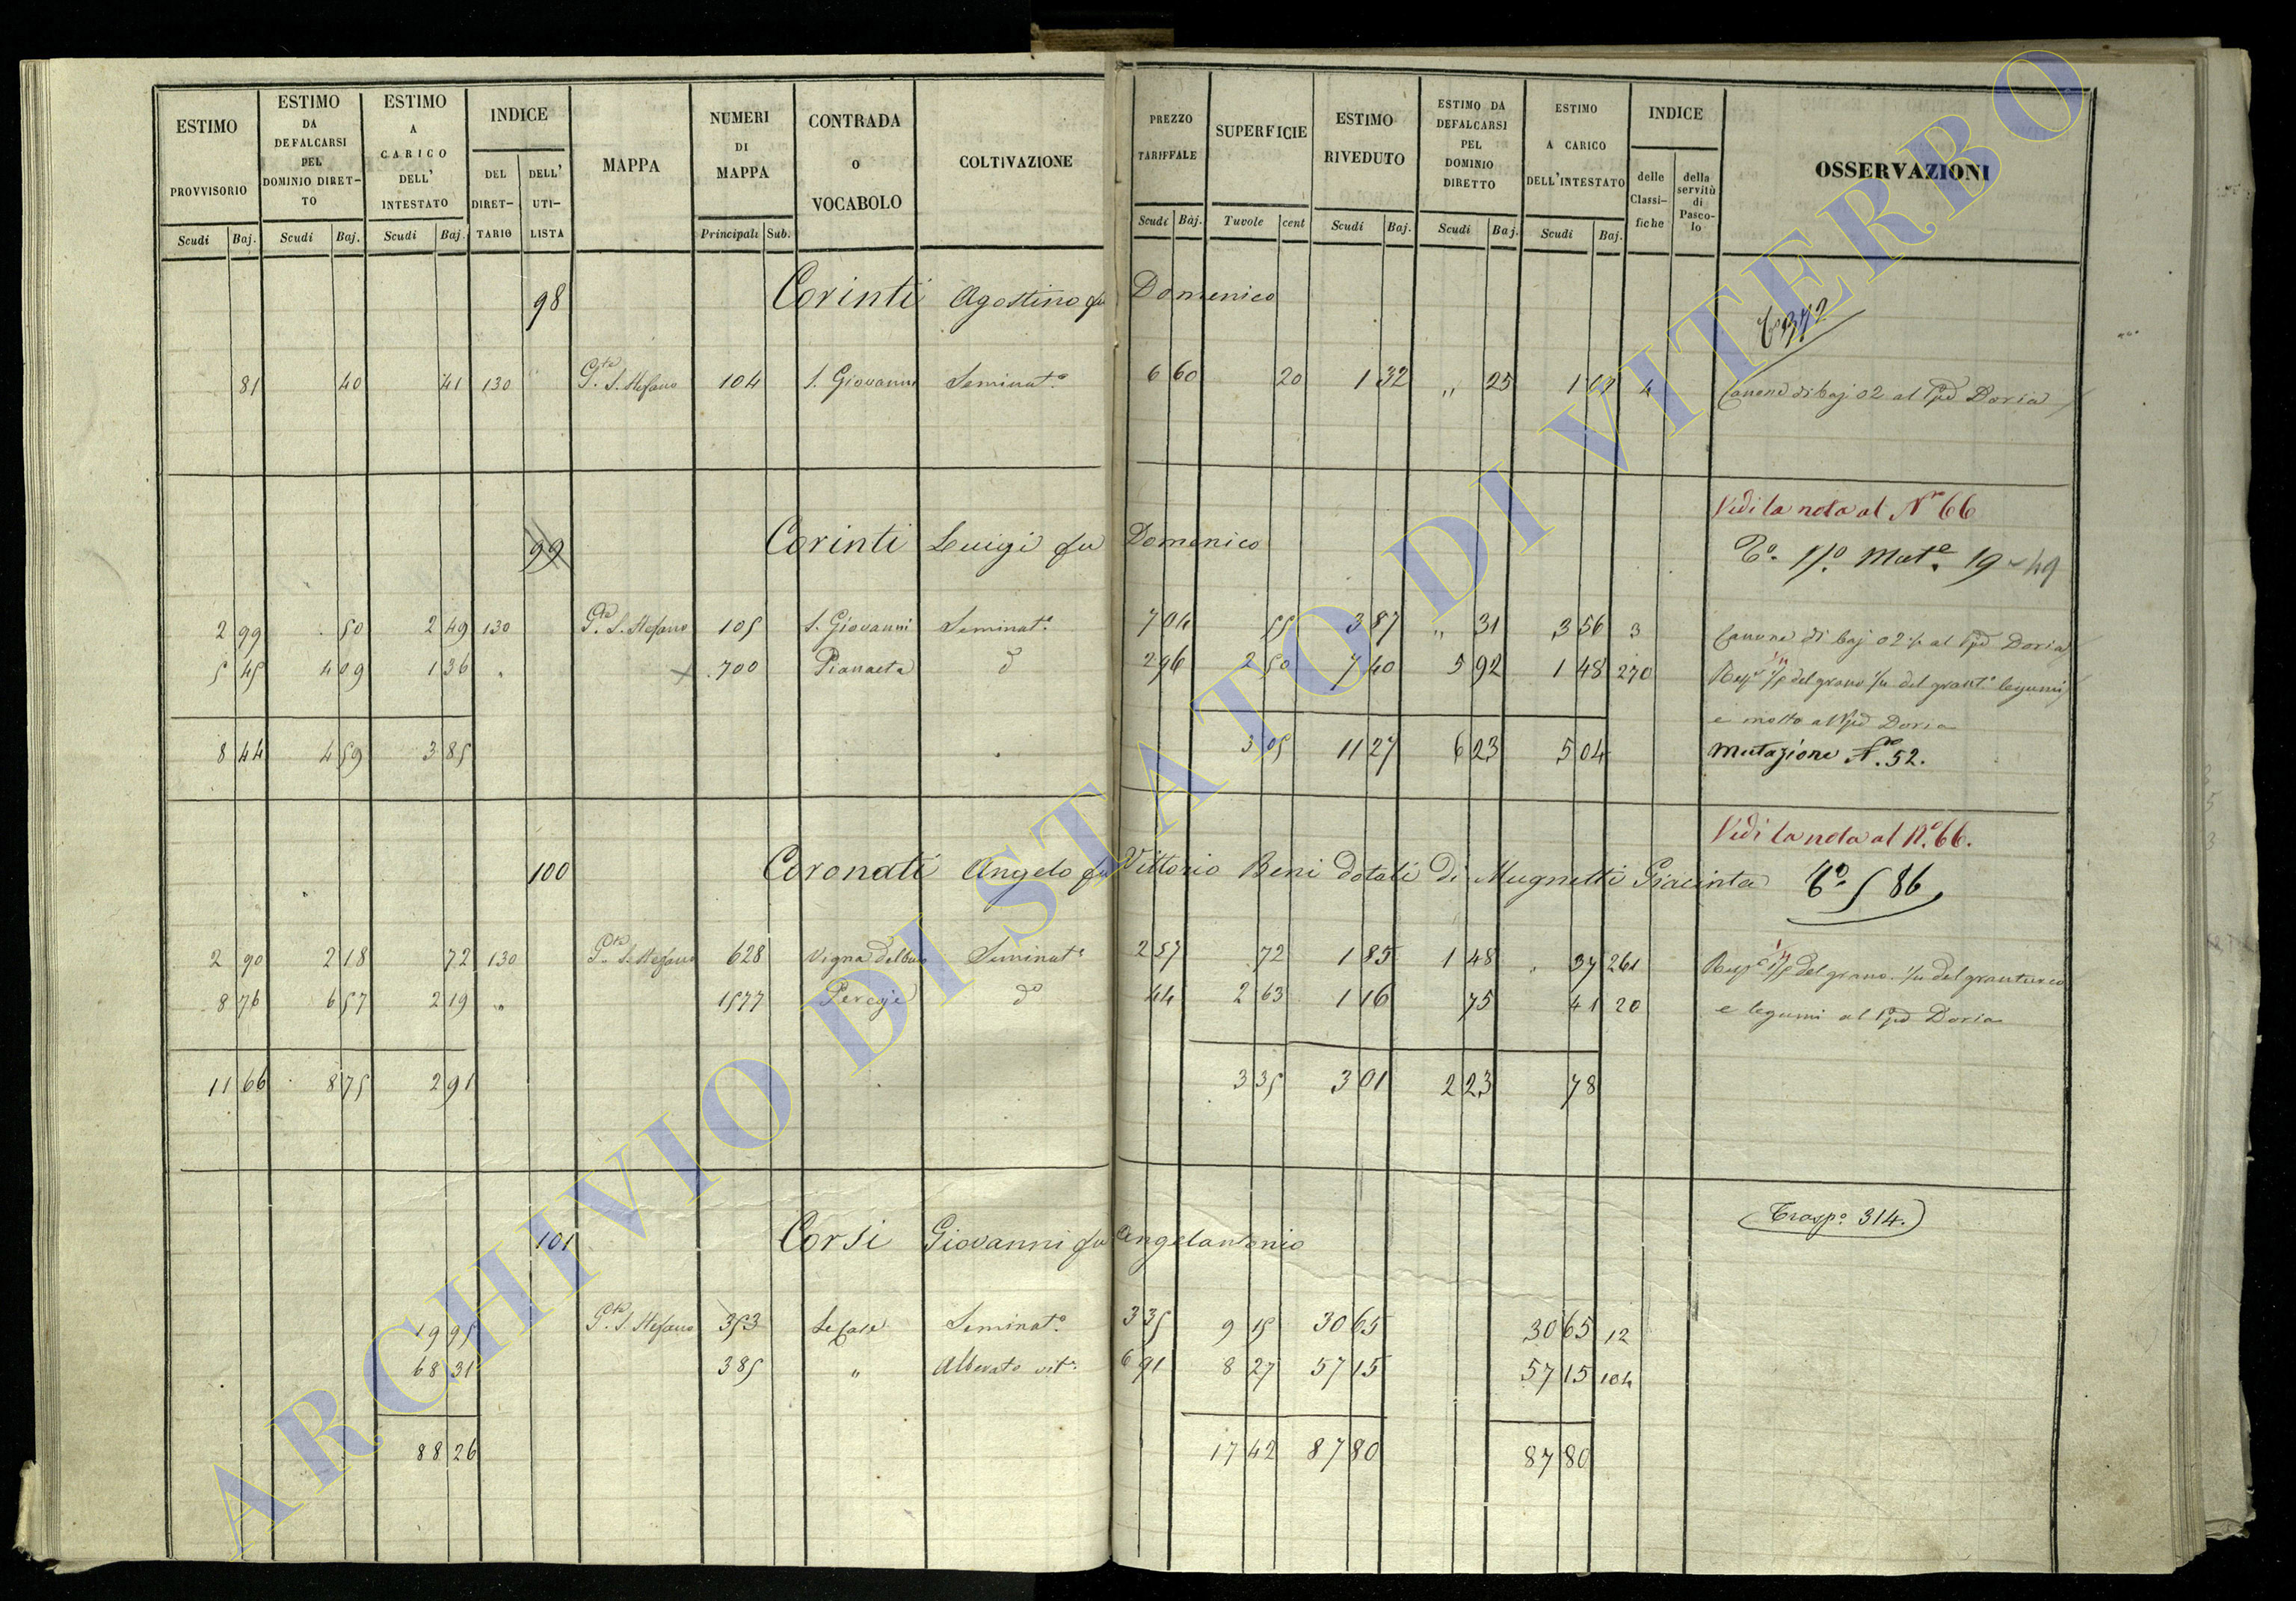 ESTIMO PROVVISORIO Scudi Baj.
ESTIMO DA DEFALCARSI PEL DOMINIO DIRET-TO Scudi Baj.
ESTIMO A CARICO DELL' INTESTATO Scudi Baj.
INDICE DEL DIRET-TARIO DELL' UTI-LISTA
MAPPA
NUMERI DI MAPPA Principali Sub.
CONTRADA O VOCABOLO
COLTIVAZIONE
PREZZO TARIFFALE Scudi Baj.
SUPERFICIE Tavole cent
ESTIMO RIVEDUTO Scudi Baj.
ESTIMO DA DEFALCARSI PEL DOMINIO DIRETTO Scudi Baj.
ESTIMO A CARICO DELL'INTESTATO Scudi Baj.
INDICE delle Classi-fiche della servitù di Pasco-lo
OSSERVAZIONI
98 Corinti Agostino fu Domenico
81 40 41 130 P.te S. Stefano 104 S. Giovanni Seminat.o 6 60 20 1 32 " 25 1 4 Canone di baj 02 al Ppe Doria
Vedi la nota al N.o 66
99 Corinti Luigi fu Domenico T.o 17.o Mut.e 19 - 49
2 99 50 2 49 130 P.te S. Stefano 105 S. Giovanni Seminat.o 7 04 55 3 87 " 31 3 56 3 Canone di baj 02 1/2 al Ppe Doria
5 45 4 09 1 36 " 700 Pianaeta d.o 2 96 2 50 7 40 5 92 1 48 270 Risp.e 1/5 del grano 1/4 del grant.o legumi
e al Ppe Doria
8 44 4 59 3 85 3 05 11 27 6 23 5 04 Mutazione N.o 52.
Vedi la nota al N.o 66.
100 Coronati Angelo fu Vittorio Beni dotali di Mugnetti Giacinta T.o 586
2 90 2 18 72 130 P.te S. Stefano 628 Vigna del bus Seminat.o 2 57 72 1 85 1 48 " 37 261 Risp.e 1/5 del grano 1/4 del granturco
8 76 6 57 2 19 " 1577 d.o 44 2 63 1 16 75 41 20 e legumi al Ppe Doria
11 66 8 75 2 91 3 35 3 01 2 23 78
(Trasp.o 314.)
101 Corsi Giovanni fu Angelantonio
19 95 P.te S. Stefano 353 Le Case Seminat.o 3 35 9 15 30 65 30 65 12
68 31 385 " Alberato vit.o 6 91 8 27 57 15 57 15 104
88 26 17 42 87 80 87 80
ARCHIVIO DI STATO DI VITERBO